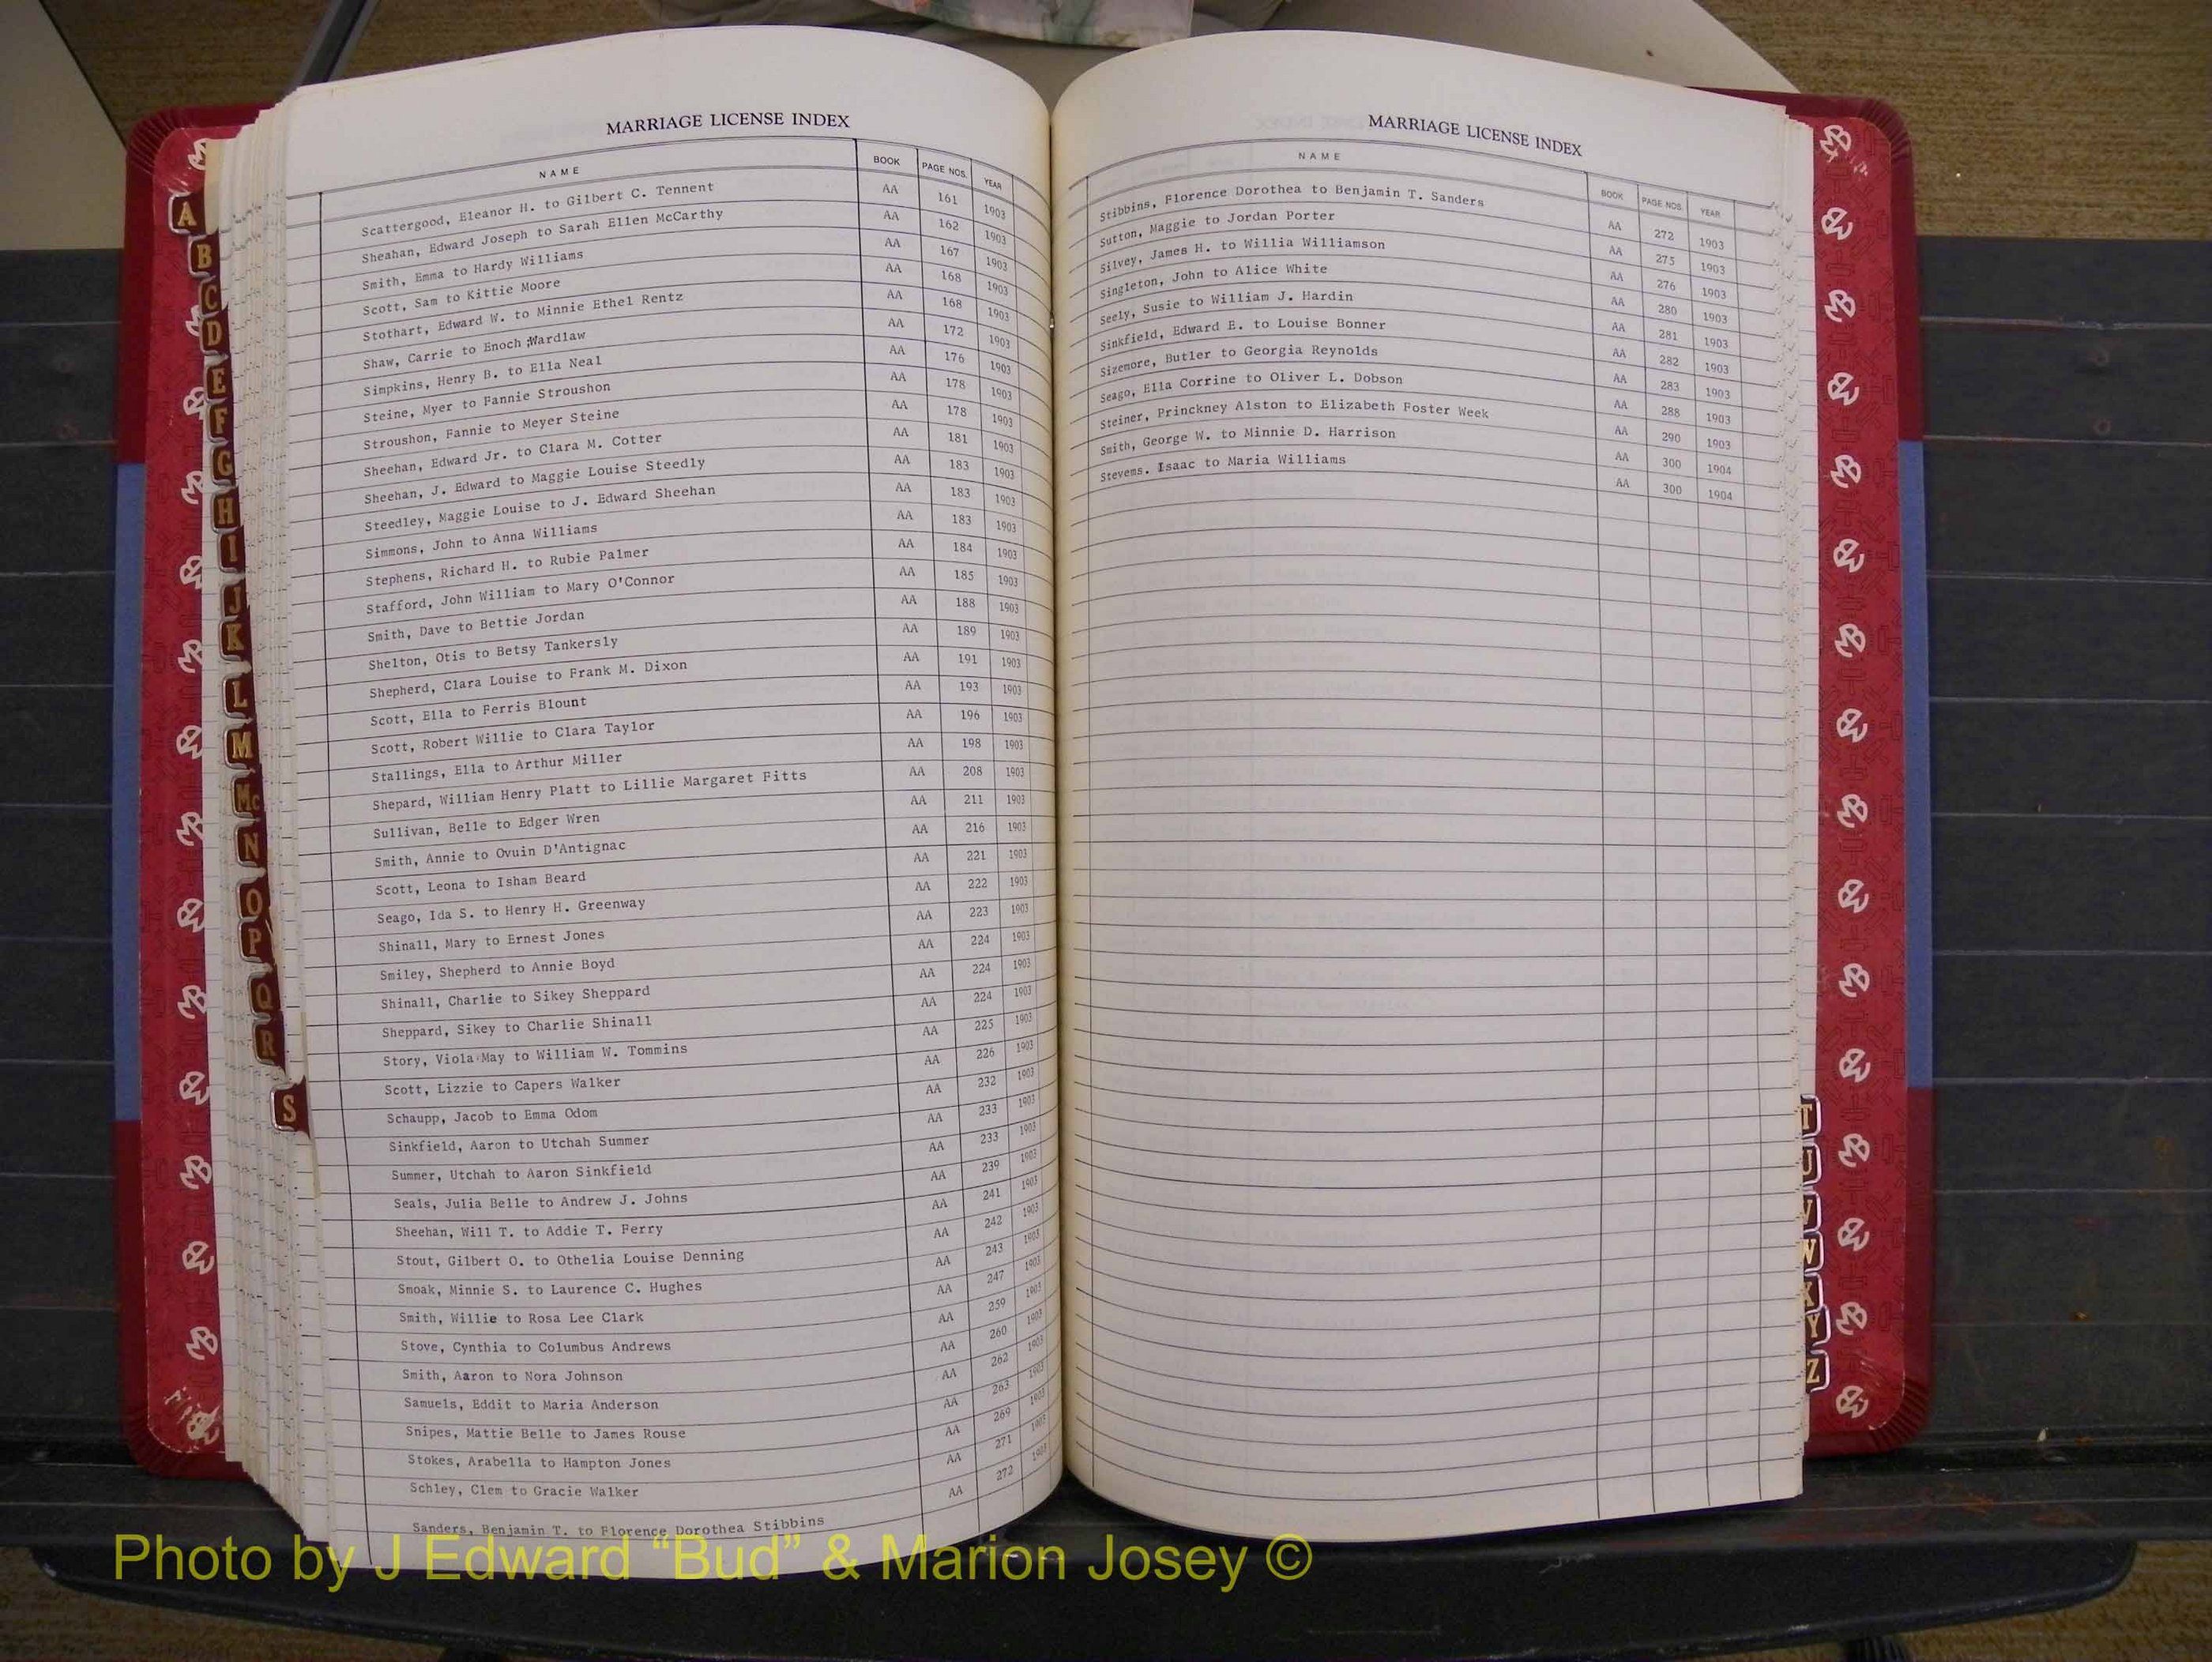 MARRIAGE LICENSE INDEX
NAME BOOK PAGE NOS. YEAR
Scattergood, Eleanor H. to Gilbert C. Tennent AA 161 1903
Sheahan, Edward Joseph to Sarah Ellen McCarthy AA 162 1903
Smith, Emma to Hardy Williams AA 167 1903
Scott, Sam to Kittie Moore AA 168 1903
Stothart, Edward W. to Minnie Ethel Rentz AA 168 1903
Shaw, Carrie to Enoch Wardlaw AA 172 1903
Simpkins, Henry B. to Ella Neal AA 176 1903
Steine, Myer to Fannie Stroushon AA 178 1903
Stroushon, Fannie to Meyer Steine AA 178 1903
Sheehan, Edward Jr. to Clara M. Cotter AA 181 1903
Sheehan, J. Edward to Maggie Louise Steedly AA 183 1903
Steedley, Maggie Louise to J. Edward Sheehan AA 183 1903
Simmons, John to Anna Williams AA 183 1903
Stephens, Richard H. to Rubie Palmer AA 184 1903
Stafford, John William to Mary O'Connor AA 185 1903
Smith, Dave to Bettie Jordan AA 188 1903
Shelton, Otis to Betsy Tankersly AA 189 1903
Shepherd, Clara Louise to Frank M. Dixon AA 191 1903
Scott, Ella to Ferris Blount AA 193 1903
Scott, Robert Willie to Clara Taylor AA 196 1903
Stallings, Ella to Arthur Miller AA 198 1903
Shepard, William Henry Platt to Lillie Margaret Fitts AA 208 1903
Sullivan, Belle to Edger Wren AA 211 1903
Smith, Annie to Ovuin D'Antignac AA 216 1903
Scott, Leona to Isham Beard AA 221 1903
Seago, Ida S. to Henry H. Greenway AA 222 1903
Shinall, Mary to Ernest Jones AA 223 1903
Smiley, Shepherd to Annie Boyd AA 224 1903
Shinall, Charlie to Sikey Sheppard AA 224 1903
Sheppard, Sikey to Charlie Shinall AA 224 1903
Story, Viola May to William W. Tommins AA 225 1903
Scott, Lizzie to Capers Walker AA 226 1903
Schaupp, Jacob to Emma Odom AA 232 1903
Sinkfield, Aaron to Utchah Summer AA 233 1903
Summer, Utchah to Aaron Sinkfield AA 233 1903
Seals, Julia Belle to Andrew J. Johns AA 239 1903
Sheehan, Will T. to Addie T. Ferry AA 241 1903
Stout, Gilbert O. to Othelia Louise Denning AA 242 1903
Smoak, Minnie S. to Laurence C. Hughes AA 243 1903
Smith, Willie to Rosa Lee Clark AA 247 1903
Stove, Cynthia to Columbus Andrews AA 259 1903
Smith, Aaron to Nora Johnson AA 260 1903
Samuels, Eddit to Maria Anderson AA 262 1903
Snipes, Mattie Belle to James Rouse AA 263 1903
Stokes, Arabella to Hampton Jones AA 269 1903
Schley, Clem to Gracie Walker AA 271 1903
Sanders, Benjamin T. to Florence Dorothea Stibbins AA 272 1903
MARRIAGE LICENSE INDEX
NAME BOOK PAGE NOS. YEAR
Stibbins, Florence Dorothea to Benjamin T. Sanders AA 272 1903
Sutton, Maggie to Jordan Porter AA 275 1903
Silvey, James H. to Willia Williamson AA 276 1903
Singleton, John to Alice White AA 280 1903
Seely, Susie to William J. Hardin AA 281 1903
Sinkfield, Edward E. to Louise Bonner AA 282 1903
Sizemore, Butler to Georgia Reynolds AA 283 1903
Seago, Ella Corrine to Oliver L. Dobson AA 288 1903
Steiner, Princkney Alston to Elizabeth Foster Week AA 290 1903
Smith, George W. to Minnie D. Harrison AA 300 1904
Stevems. Isaac to Maria Williams AA 300 1904
A
B
C
D
E
F
G
H
I
J
K
L
M
Mc
N
O
P
Q
R
S
T
U
V
W
X
Y
Z
Photo by J Edward “Bud” & Marion Josey ©